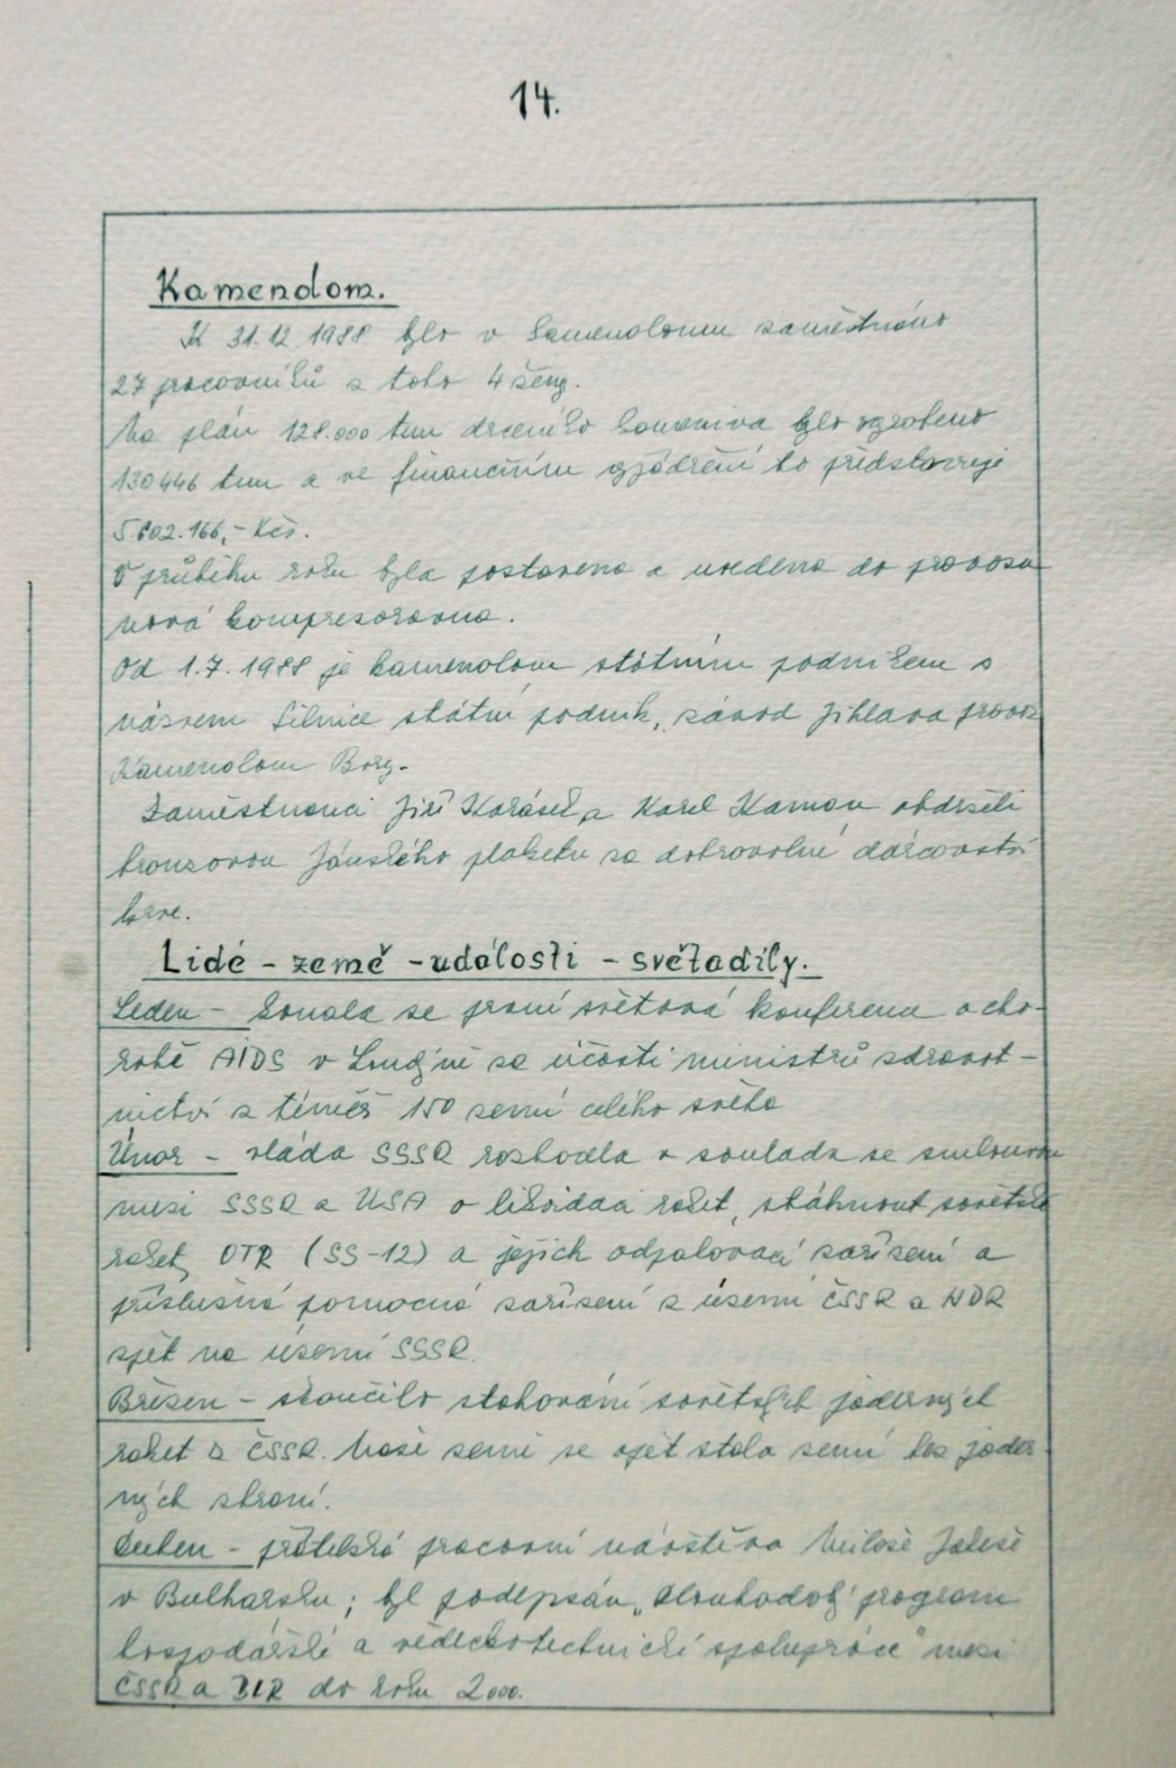 14.
Kamenolom.
K 31.12.1988 bylo v kamenolomu zaměstnáno
27 pracovníků z toho 4 ženy.
Na plán 128.000 tun drceného kameniva bylo vyrobeno
130446 tun a ve finančním vyjádření to představuje
5.602.166,- Kčs.
V průběhu roku byla postavena a uvedena do provozu
nová kompresorovna.
Od 1.7.1988 je kamenolom státním podnikem s
názvem Silnice státní podnik, závod Jihlava provoz
Kamenolom Bory.
Zaměstnanci Jiří Karásek a Karel Kaman obdrželi
bronzovou Jánského plaketu za dobrovolné dárcovství
krve.
Lidé - země - události - světadíly.
Leden - konala se první světová konference o cho-
robě AIDS v Londýně za účasti ministrů zdravot-
nictví z téměř 150 zemí celého světa
Únor - vláda SSSR rozhodla v souladu se smlouvou
mezi SSSR a USA o likvidaci raket, stáhnout sovětské
rakety OTR (SS-12) a jejich odpalovací zařízení a
příslušná pomocná zařízení z území ČSSR a NDR
zpět na území SSSR.
Březen - skončilo stahování sovětských jaderných
raket z ČSSR. Naše země se opět stala zemí bez jader-
ných zbraní.
Duben - přátelská pracovní návštěva Miloše Jakeše
v Bulharsku; byl podepsán „Dlouhodobý program
hospodářské a vědeckotechnické spolupráce" mezi
ČSSR a BLR do roku 2000.